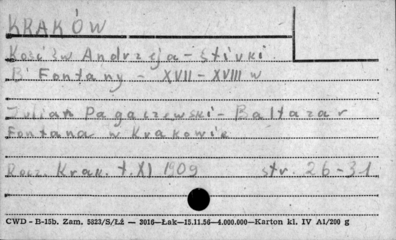 KRAKÓW
Kośc. św Andrzeja - stivki
B. Fontany - XVII - XVIII w
Julian Pagaczewski - Baltazar
Fontana w Krakowie
Rocz. Krak. t. XI 1909 str. 26-31
CWD - B-15b. Zam. 5823/S/Łż — 3016—Łak—15.11.56—4.000.000—Karton kl. IV A1/200 g